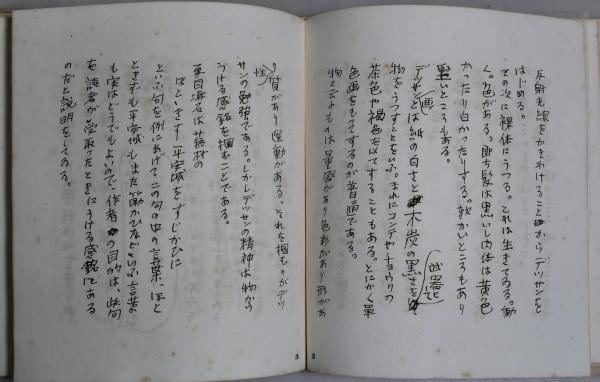 反射光線をかきわけることからデッサンを
はじめる。
その次に裸体にうつる。これは生きてゐる。動
く。色がある。即ち髪は黒いし肉体は黄色
かったり白かったりする。軟かいところもあり
堅いところもある。
デッサンとは紙の白さと木炭の黒さを
画
武器として
物をうつすことをいふ。まれにコンテやチョウクの
茶色や褐色を以てすることもある。とにかく単
色画をもってするのが普通である。
物と云ふものは量感があり色彩があり形があ
2
り質があり運動がある。それを掴むのがデッ
性
サンの勉強である。しかしデッサンの精神は物から
うける感銘を掴むことである。
夏目漱石は蕪村の
ほといぎす平安城をすじかひに
といふ句を例にあげてこの句の中の言葉、ほと
ときすも平安城もまた筋かひなどといふ言葉
も実はどうでもよいので、作者の目的は、此句
を読者が受取ったときにうける感銘にある
のだと説明をしてゐる。
3